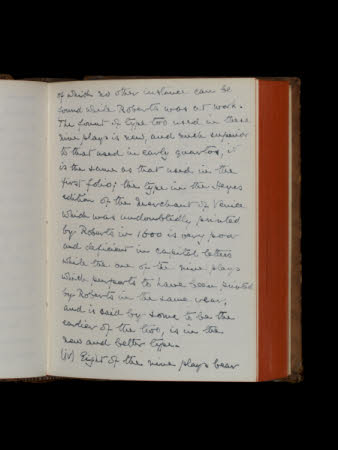 of which no other instance can be
found while Roberts was at work.
The fount of type too used in these
nine plays is new, and much superior
to that used in early quartos, it
is the same as that used in the
first folio; the type in the Heyes
edition of the Merchant of Venice
which was undoubtedly printed
by Roberts in 1600 is very poor
and deficient in capital letters
while the one of the nine plays
which purports to have been printed
by Roberts in the same year,
and is said by some to be the
earlier of the two, is in the
new and better type.
(iv) Eight of the nine plays bear